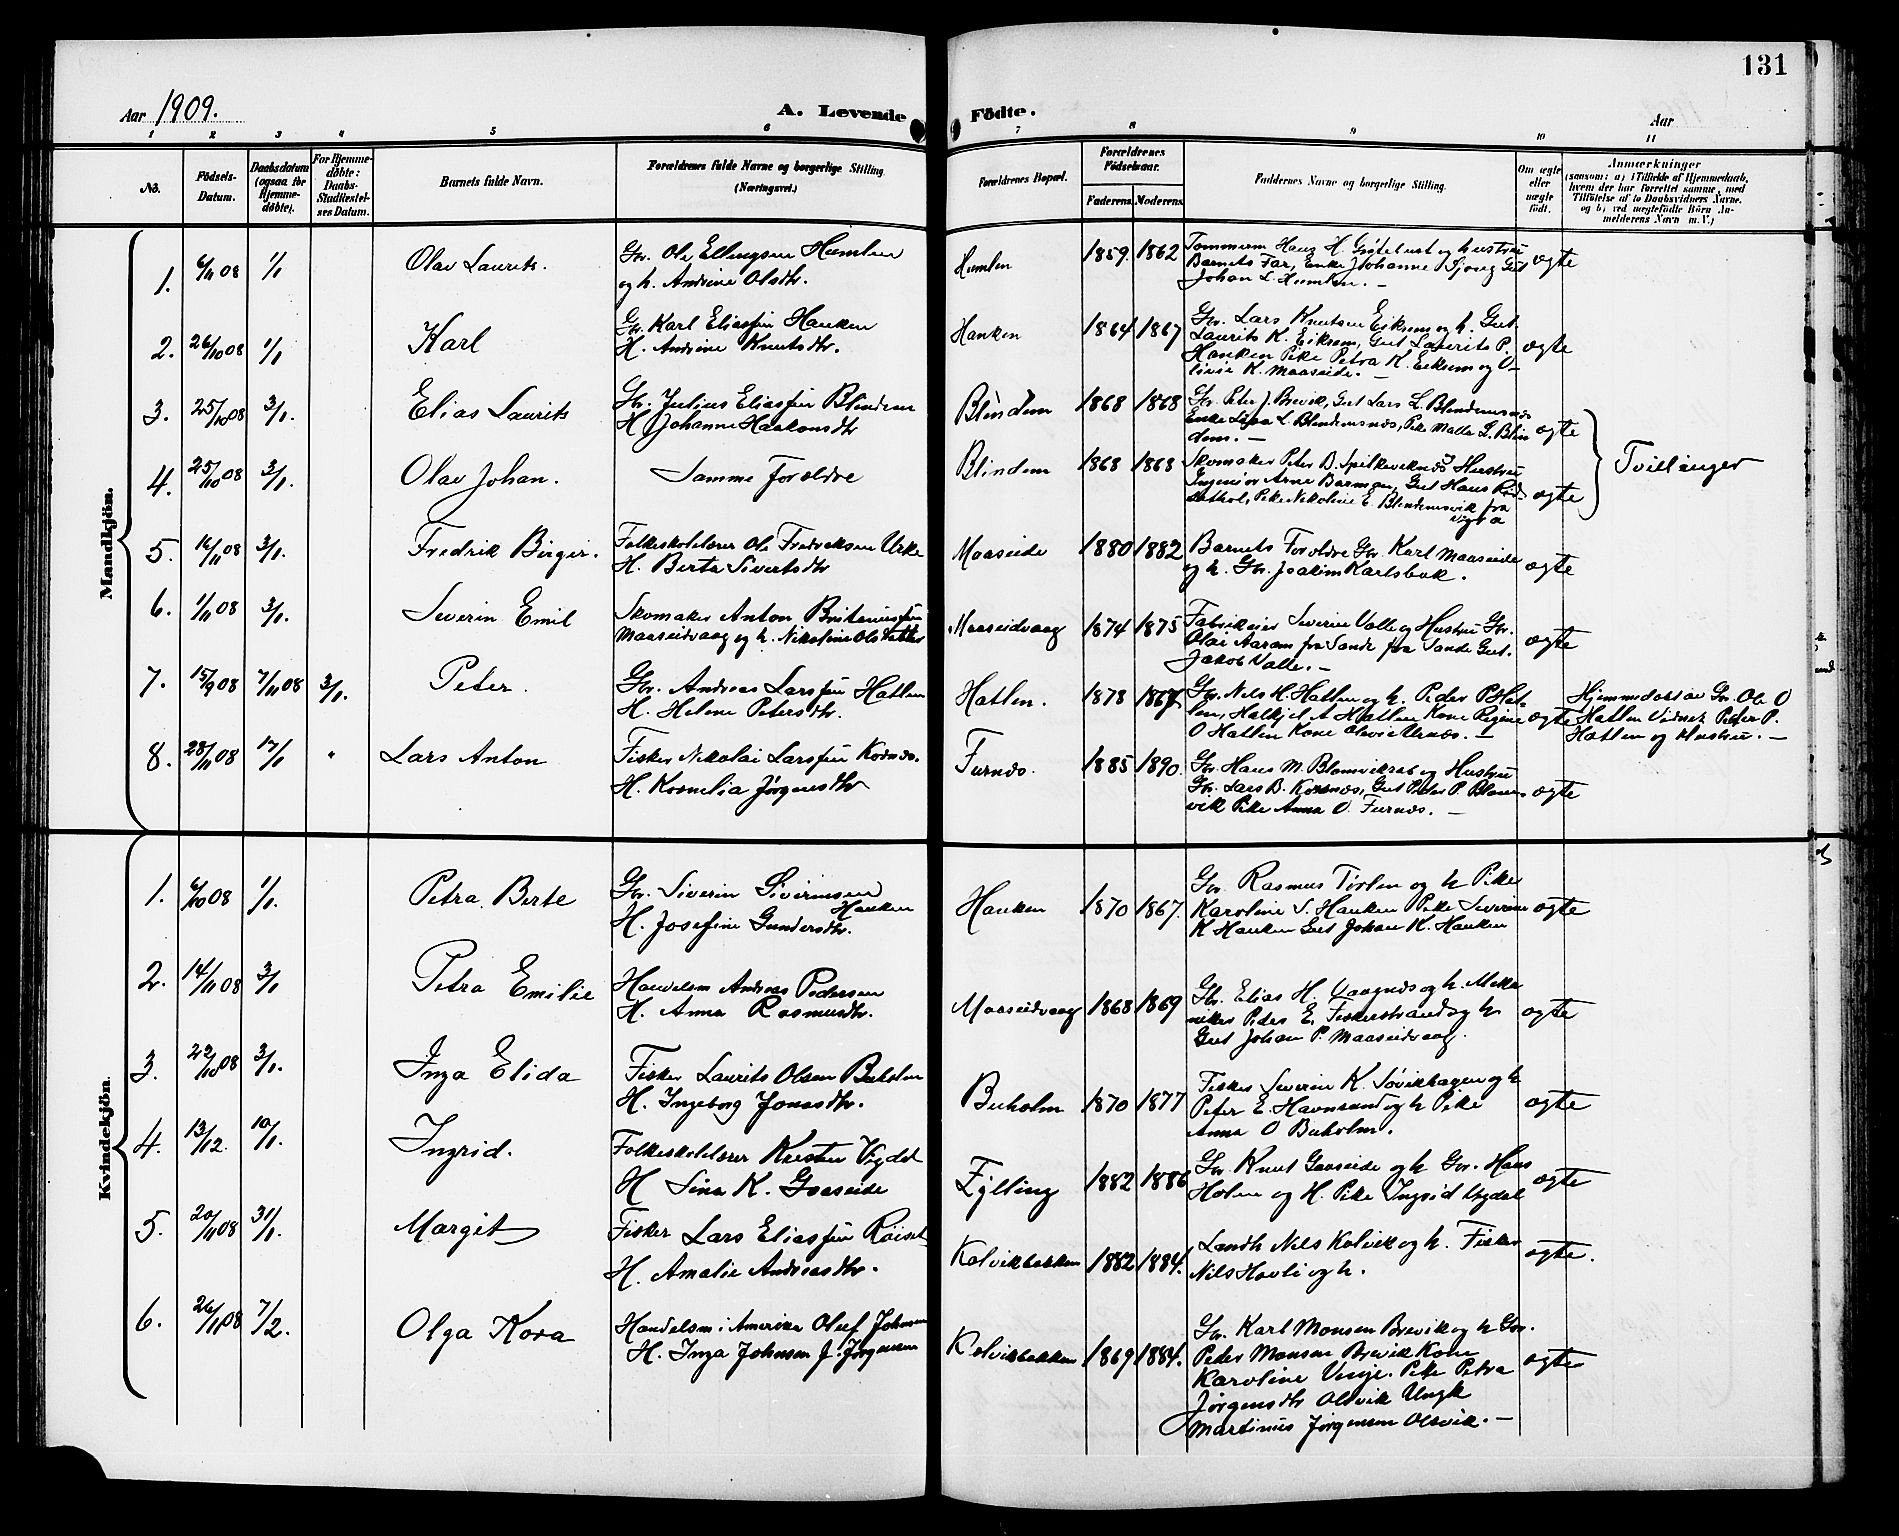 131
Aar 1909.
A. Levende
Födte.
Aar
1 2 3 4 5 6 7 8 9 10 11
No.
Födsels-
Datum.
Daabsdatum
(ogsaa for
Hjemme-
döbte).
For Hjemme-
döbte:
Daabs-
Stadfæstel-
ses Datum.
Barnets fulde Navn.
Forældrenes fulde Navne og borgerlige Stilling.
(Næringsvei.)
Forældrenes Bopæl.
Forældrenes
Födselsaar.
Faderens. Moderens.
Faddernes Navne og borgerlige Stilling.
Om ægte
eller
uægte
født.
Anmærkninger
(saasom: a) i Tilfælde af Hjemmedaab,
hvem der har forrettet samme, med
Tilföielse af to Daabsvidners Navne,
og b) ved uægtefödte Börn An-
melderens Navn m. V.)
Mandkjön.
1. 6/11 08 1/1 Olav Laurits. Gr. Ole Ellingsen Humlen
og h. Andrine Olsdtr.
Humlen 1859. 1862
Tommerm Hans H. Gjøtelust og hustru
Barnets Far, Enke Johanne Gjong Gut
Johan L. Humlen. —
ægte
2. 26/10 08 1/1 Karl Gr. Karl Eliassen Hanken
H. Andrine Knutsdtr.
Hanken 1864 1867
Gr. Lars Knutsen Eiksem og h. Gut
Laurits K. Eiksem, Gut Laurits P.
Hanken Pike Petra K. Eiksem og O-
livie K. Maaseide. —
ægte
3. 25/10 08 3/1. Elias Laurits Gr. Julius Eliassen Blindem
H. Johanne Haakonsdtr
Blindem 1868 1868
Gr. Peter J. Brevik, Gut Lars L. Blindemsnæs
Enke Lina L. Blindemsnæs, Pike Malla L. Blin
dem. —
ægte
4. 25/10 08 3/1. Olav Johan. Samme Forældre
Blindem 1868 1868
Skomaker Peter B. Spilkeviknæs Hustru
Ingeniør Arne Barman, Gut Hans
Pike Nikoline E. Blindemsvik fra
Vigra
ægte
Tvillinger
5. 16/11 08 3/1. Fredrik Birger. Folkeskolelærer Ole Fredriksen Urke
H. Berte Sivertsdtr
Maaseide 1880 1882
Barnets Forældre Gr. Karl Maaseide
og h. Gr. Joakim Karlsbak.
ægte
6. 1/11 08 3/1. Severin Emil Skomaker Anton
Maaseidvaag og h. Nikoline
Maaseidvaag 1874 1875
Fabrikeier Severin Valle og Hustru Gr.
Olai Aaram fra Sande fra Sande Gut.
Jakob Valle. —
ægte
7. 15/9 08 7/11 08 3/1. Peter. Gr. Andreas Larssen Hatlem
H. Helene Petersdtr.
Hatlen. 1878
Gr. Nils H. Hatlen og h. Peder P. Hat-
len, Halkjel A Hatlen Kone Regine
O Hatlen Kone Olivie Urnæs. —
ægte
Hjemmedøbt av Gr. Ole O
Hatlen Vidner Petter P.
Hatlen og Hustru. —
8. 28/11 08 17/1 " Lars Anton Fisker Nikolai Larssen Korsnæs.
H. Kornelia Jørgensdtr
Furnæs. 1885 1890.
Gr. Hans M. Blomvikrab og Hustru
Gr. Lars B. Korsnæs, Gut Peder P. Blom-
vik Pike Anna O. Furnæs. —
ægte
Kvindekjön.
1. 6/10 08 1/1. Petra Berte Gr. Siverin Siverinsen
Hanken
H. Josefine Gundersdtr.
Hanken 1870 1867.
Gr. Rasmus Tørlen og h Pike
Karoline S. Hanken Pike Severine
K Hanken Gut Johan K. Hanken
ægte
2. 14/11 08 3/1 Petra Emilie Handelsm Andreas Pedersen
H. Anna Rasmusdtr.
Maaseidvaag 1868 1869
Gr. Elias H. Vaagnæs og h. Meka
niker Peder E. Fiskerstrand og h
Gut Johan P. Maaseidvaag.
ægte
3. 22/10 08 3/1. Inga Elida Fisker Laurits Olsen Buholm
H. Ingeborg Jonasdtr.
Buholm 1870 1877
Fisker Severin K. Søvikhagen og h
Peter E. Havnsund og h Pike
Anna O Buholm.
ægte
4. 13/12. 10/1. Ingrid. Folkeskolelærer Kristen Vigdal
H Sina K. Gaaseide
Fylling 1882 1886
Gr. Knut Gaaseide og h Gr. Hans
Holen og H. Pike Ingrid Vigdal
ægte
5. 20/11 08 31/1. Margit Fisker Lars Eliassen Røiset
H. Amalie Andreasdtr.
Kolvikbakken 1882 1884.
Landh Nils Kolvik og h. Fisker
Nils Hovli og h.
ægte.
6. 26/11 08 7/2. Olga Kora Handelsm i Amerika Oluf Johnsen
H. Inga Johnsen f. Jørgensen
Kolvikbakken 1869 1884.
Gr. Karl Monsen Brevik og h Gr.
Peder Monsen Brevik Kone
Karoline Vinje. Pike Petra
Jørgensdtr Olsvik Ungk
Martinus Jørgensen Olsvik. —
ægte